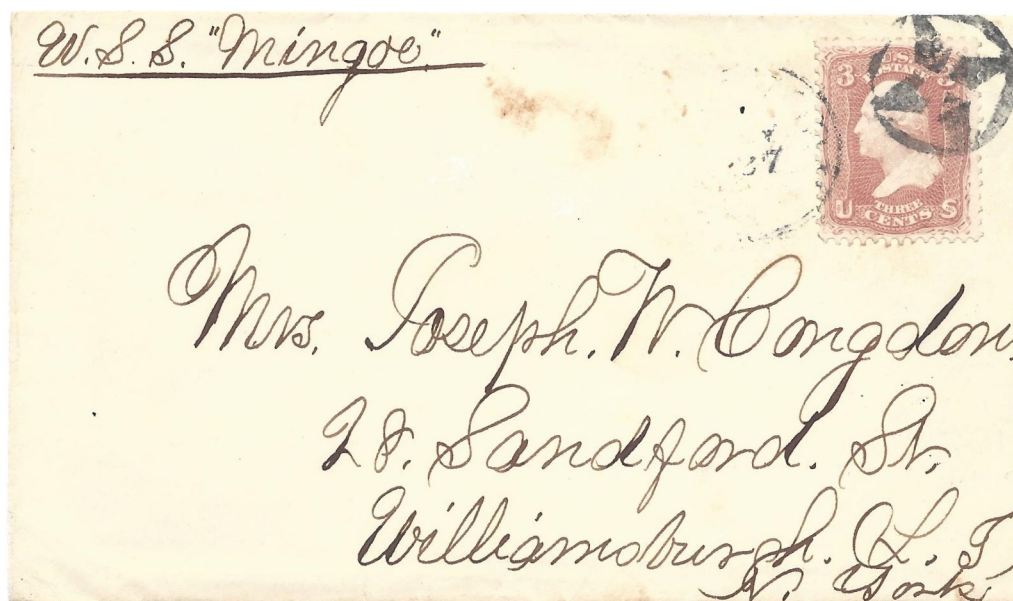 U.S.S. "Mingoe"
27
3 U.S. 3
POSTAGE
THREE
U CENTS S
Mrs. Joseph. W. Congdon,
28. Sandford. St.
Williamsburgh. L. I
N. York